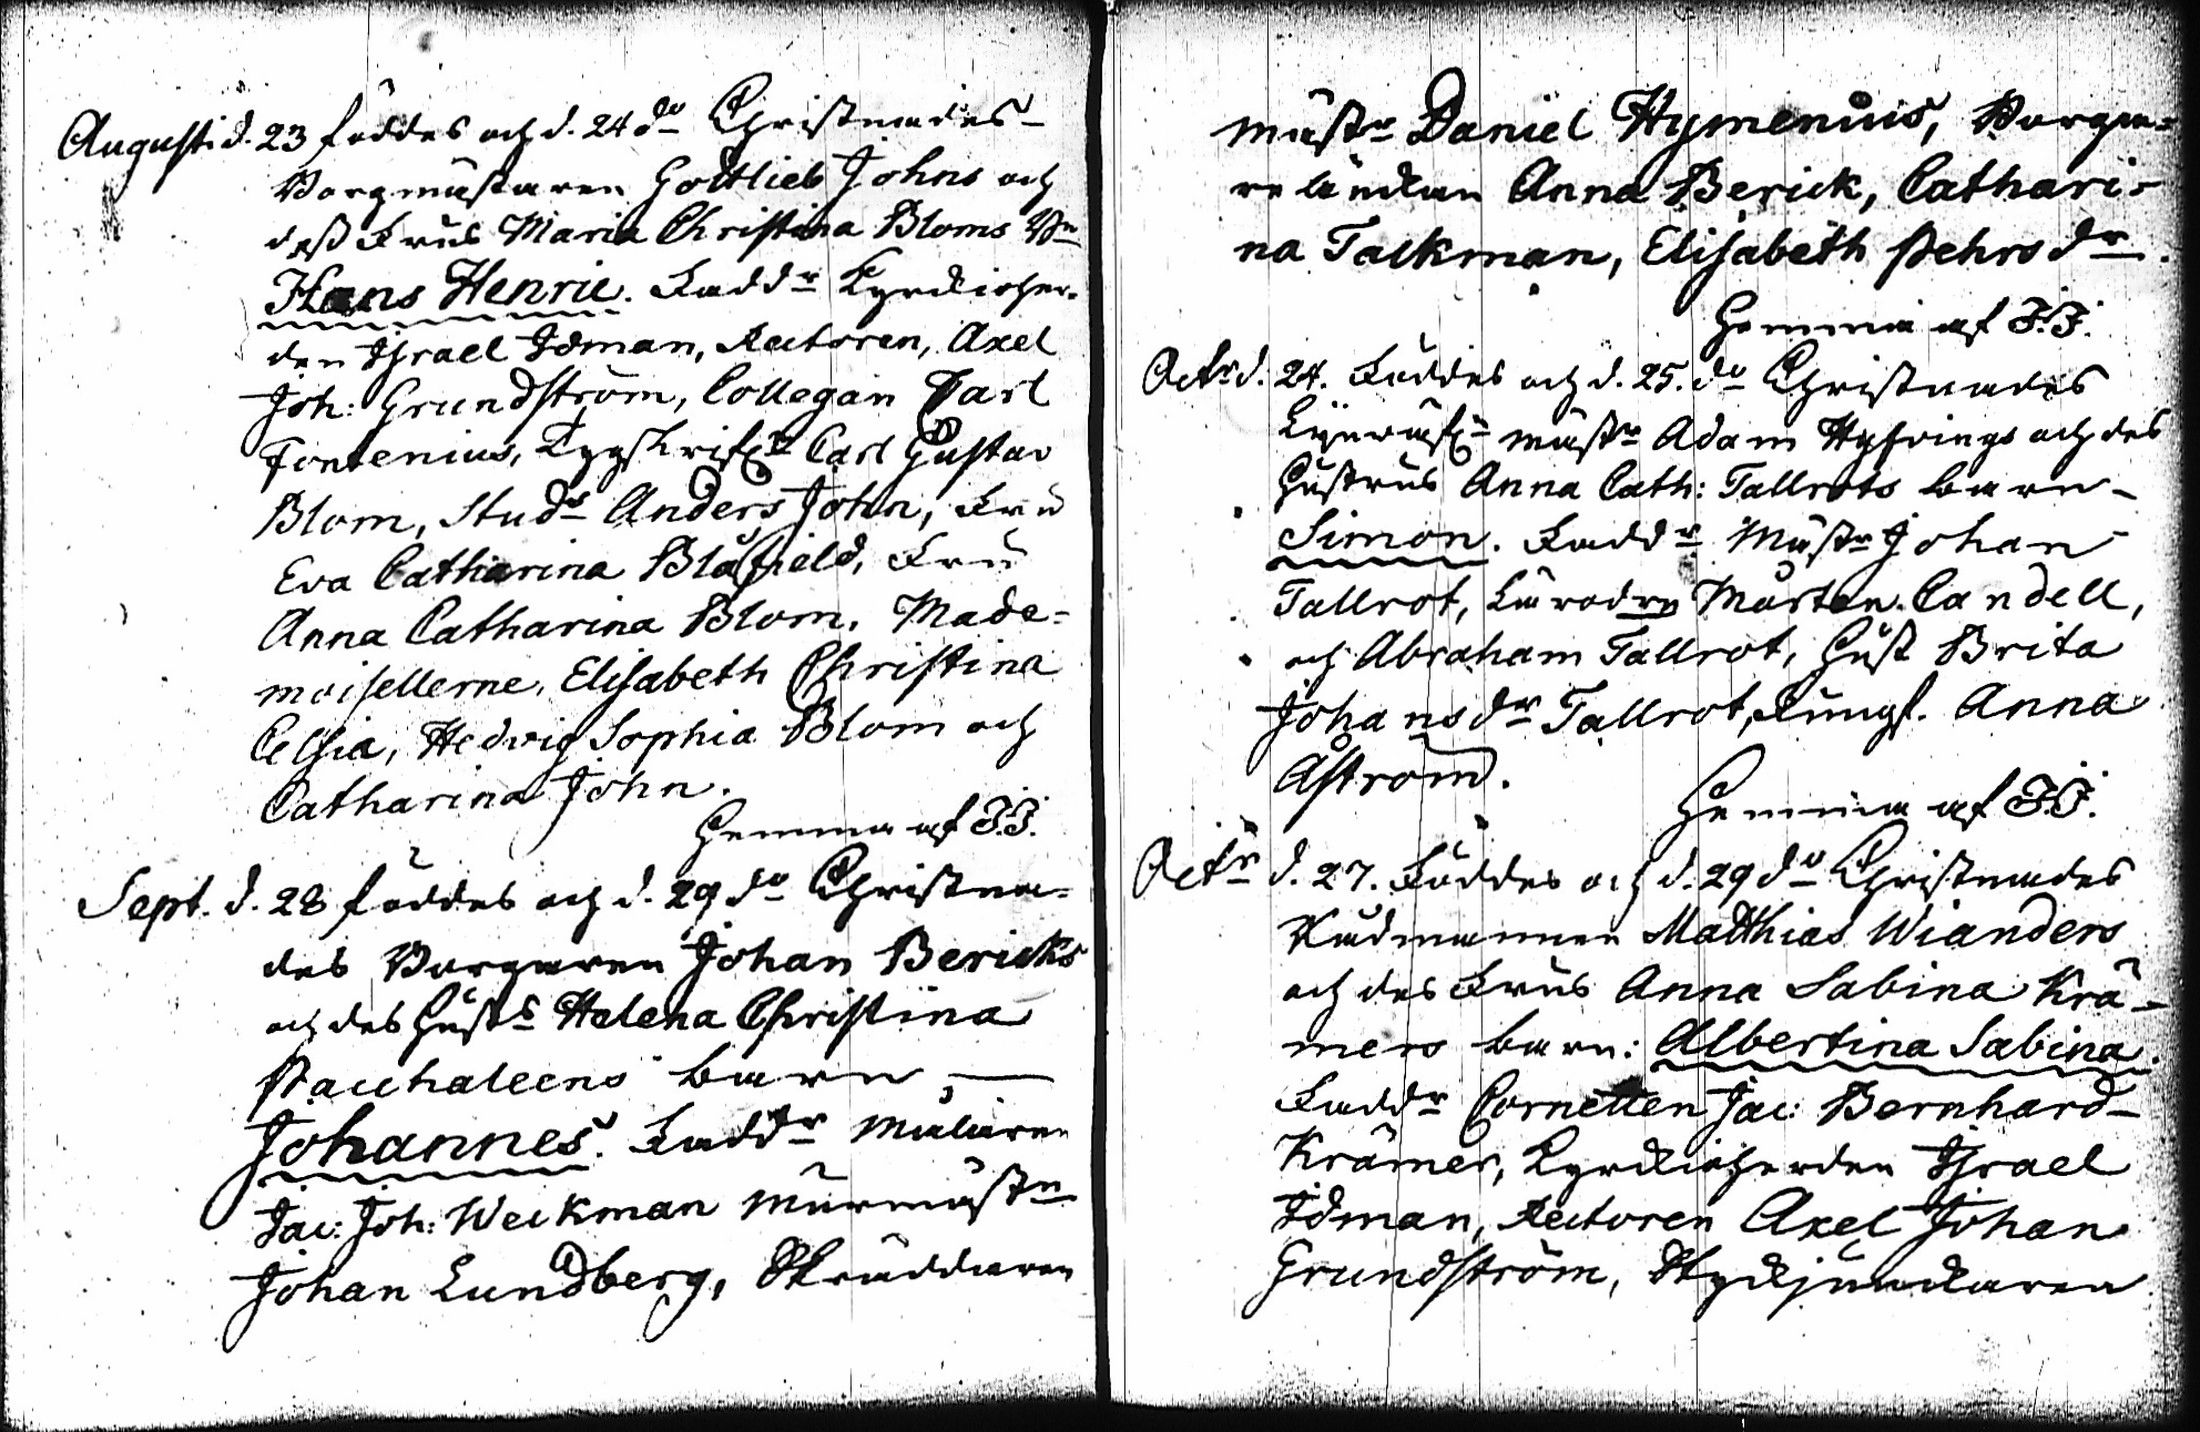 Augusti d. 23 föddes och d. 24 do Christnades
Borgmästaren Gottlieb Johns och
dess Frus Maria Christina Bloms Bn
Hans Henric. Faddr Kyrckioher-
den Israel Idman, Rectoren, Axel
Joh: Grundström, Collegan Carl
Fontenius, Carl Gustav
Blom, Studs Anders John, Fru
Eva Catharina Blåfield, Fru
Anna Catharina Blom, Made-
moisellerne, Elisabeth Christina
Celsia, Hedvig Sophia Blom och
Catharina John.
Hemma af I.I.
Sept. d. 28 föddes och d. 29 do Christna-
des Borgaren Johan Bericks
och des Hustrs Helena Christina
Pacchaleens barn,
Johannes. Faddr Målaren
Jac: Joh: Weckman Murmästr
Johan Lundberg, Skräddaren
mästr Daniel Hymenius, Borga-
re änckan Anna Berick, Cathari-
na Tackman, Elisabeth Pehrs dr.
Hemma af I.I.
Octr d. 24. Föddes och d. 25. do Christnades
Linväf: mästr Adam Hyfvings och des
Hustrus Anna Cath: Tallrots barn
Simon. Faddr Mästr Johan
Tallrot, Lärodrn Mårten Candell,
och Abraham Tallrot, Hust Brita
Johans dr Tallrot, Jungf. Anna
Åström.
Hemma af I.I.
Octr d. 27. Föddes och d. 29 do Christnades
Rådmannen Matthias Wianders
och des Frus Anna Sabina Krä-
mers barn: Albertina Sabina.
Faddr Cornetten Jac: Bernhard
Krämer, Kyrckioherden Israel
Idman, Rectoren Axel Johan
Grundström, Styckjunckaren